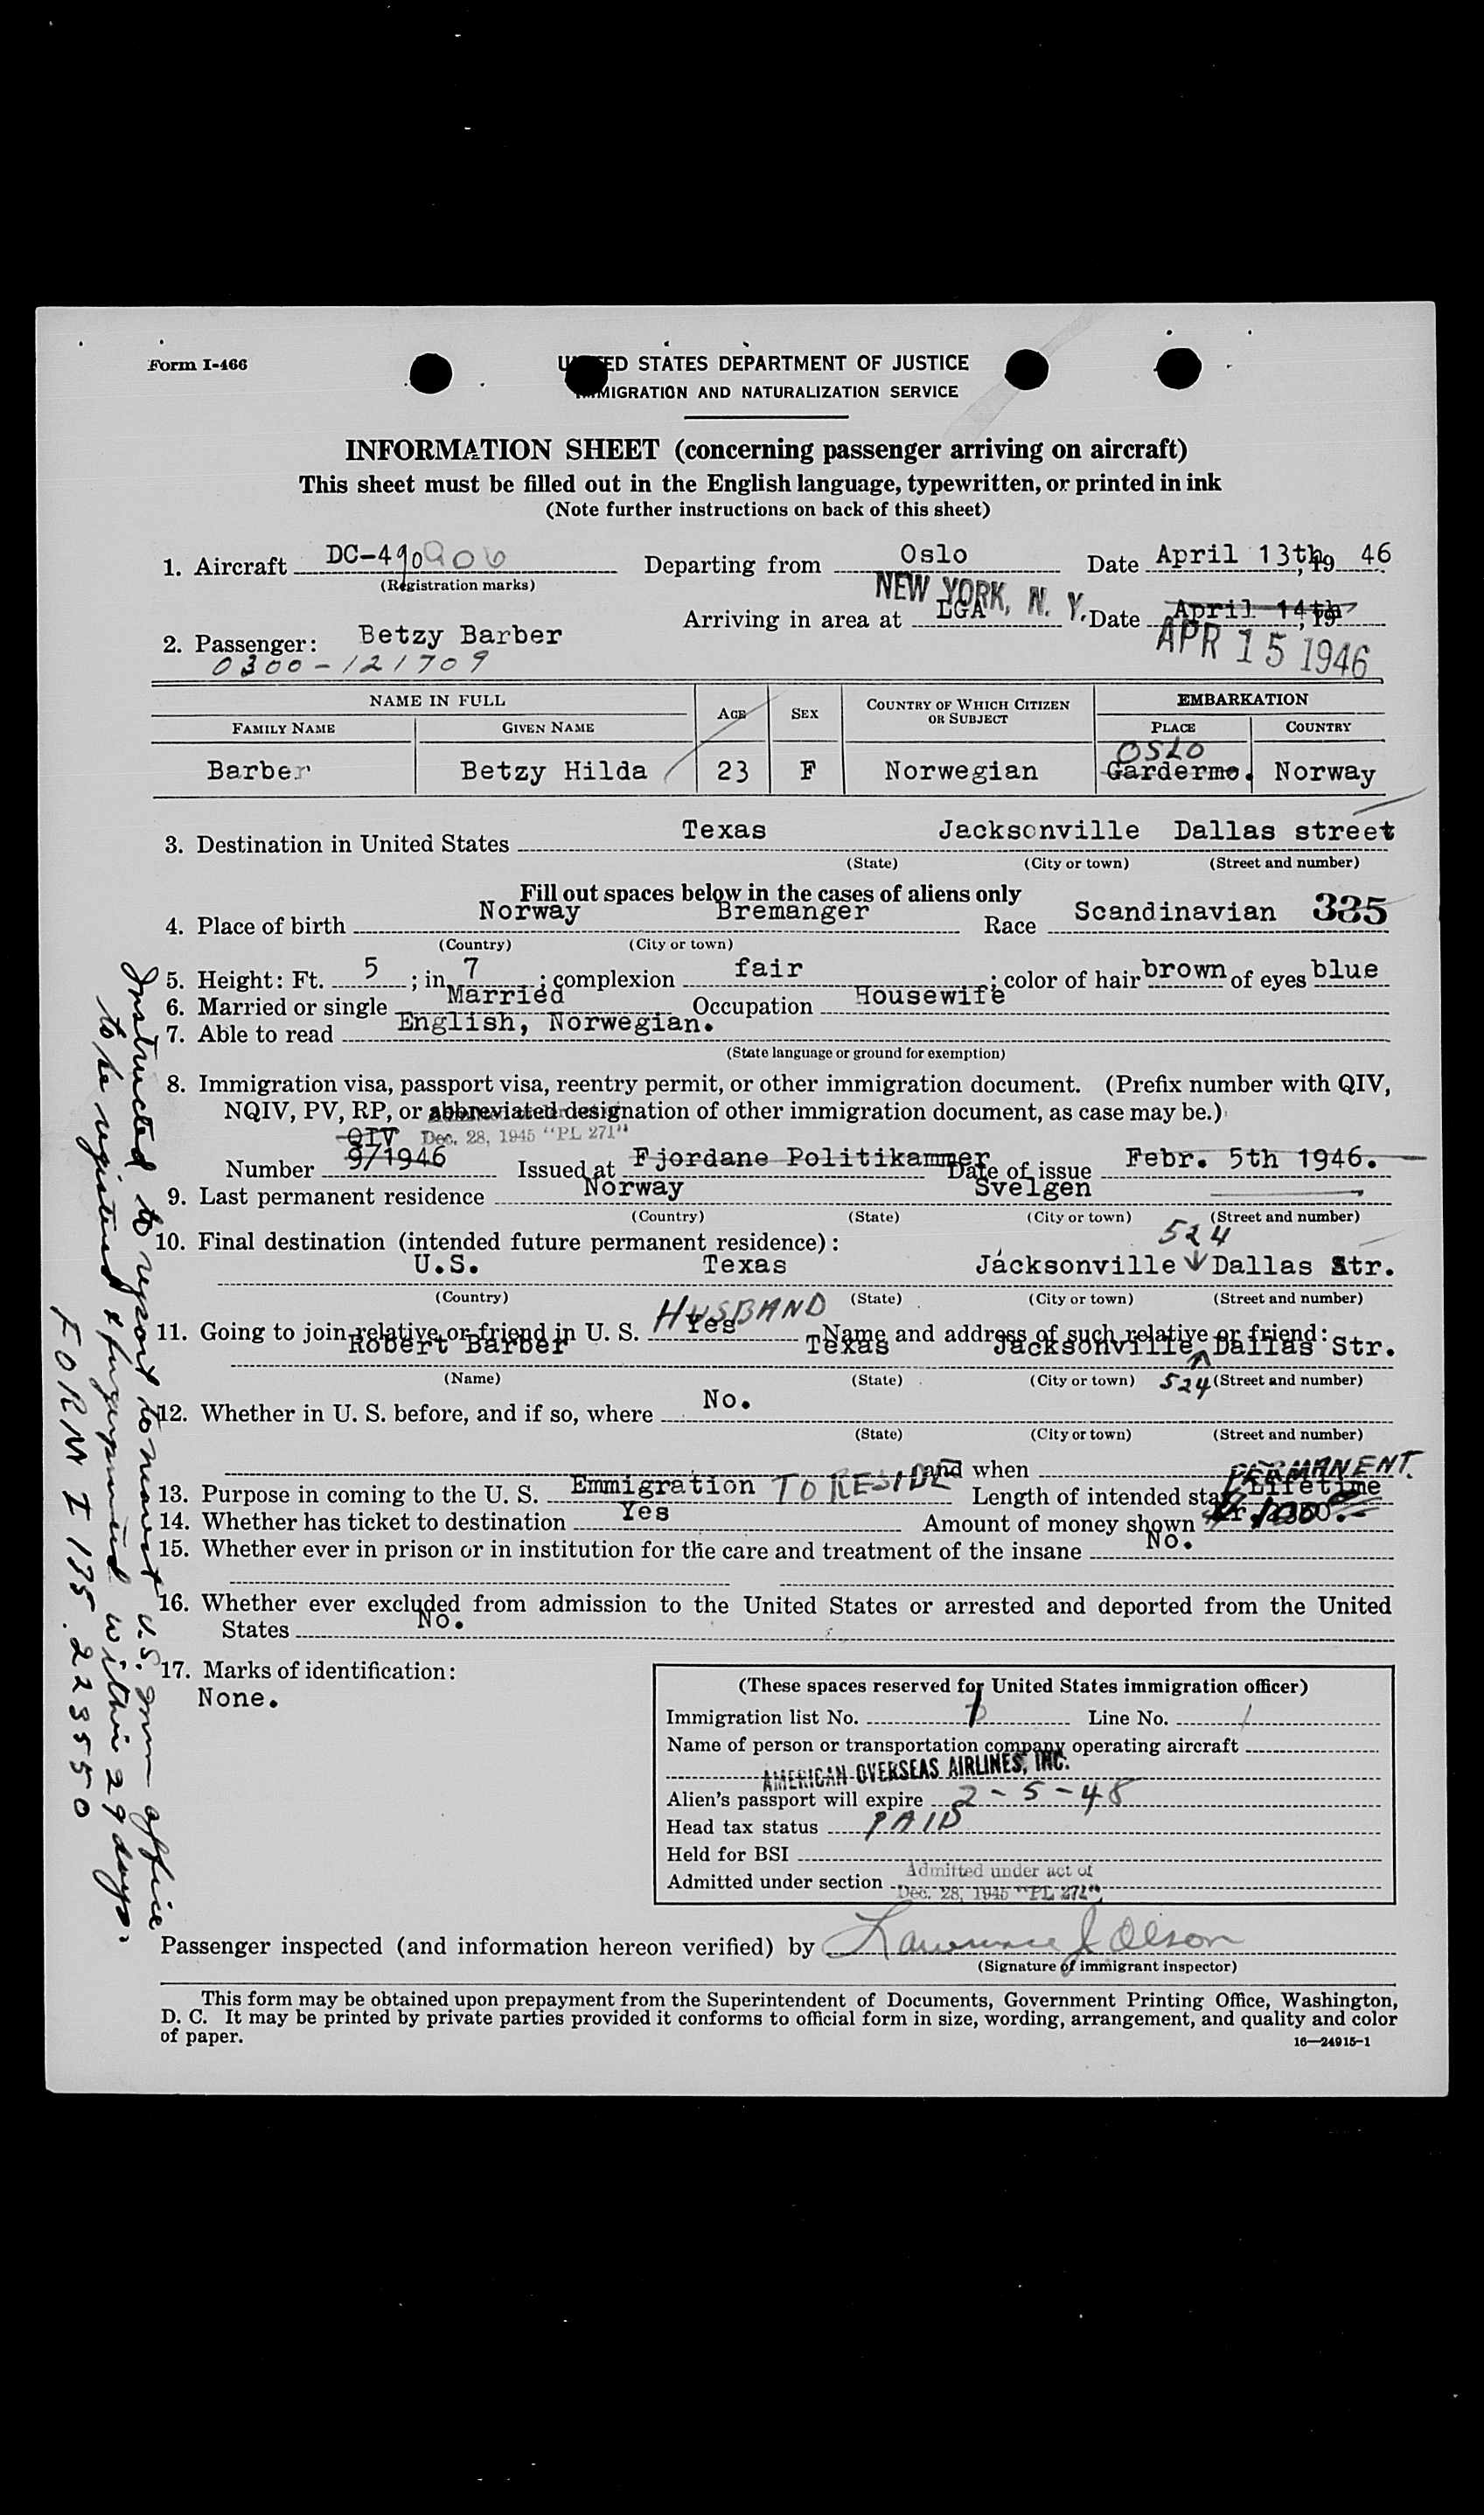 Form I-466
UNITED STATES DEPARTMENT OF JUSTICE
IMMIGRATION AND NATURALIZATION SERVICE
INFORMATION SHEET (concerning passenger arriving on aircraft)
This sheet must be filled out in the English language, typewritten, or printed in ink
(Note further instructions on back of this sheet)
1. Aircraft DC-4 90906 Departing from Oslo Date April 13th, 19 46
(Registration marks)
NEW YORK, N. Y.
Arriving in area at LGA Date April 14th, 19
APR 15 1946
2. Passenger: Betzy Barber
0300-121709
NAME IN FULL AGE SEX COUNTRY OF WHICH CITIZEN OR SUBJECT EMBARKATION
FAMILY NAME GIVEN NAME PLACE COUNTRY
OSLO
Barber Betzy Hilda 23 F Norwegian Gardermo. Norway
3. Destination in United States Texas Jacksonville Dallas street
(State) (City or town) (Street and number)
Fill out spaces below in the cases of aliens only
4. Place of birth Norway Bremanger Race Scandinavian 335
(Country) (City or town)
5. Height: Ft. 5 ; in. 7 ; complexion fair ; color of hair brown of eyes blue
6. Married or single Married Occupation Housewife
7. Able to read English, Norwegian.
(State language or ground for exemption)
8. Immigration visa, passport visa, reentry permit, or other immigration document. (Prefix number with QIV,
NQIV, PV, RP, or abbreviated designation of other immigration document, as case may be.)
QIV Dec. 28, 1945 "PL 271"
Number 9/1946 Issued at Fjordane Politikammer Date of issue Febr. 5th 1946.
9. Last permanent residence Norway Svelgen
(Country) (State) (City or town) (Street and number)
10. Final destination (intended future permanent residence): 524
U.S. Texas Jacksonville Dallas Str.
(Country) (State) (City or town) (Street and number)
11. Going to join relative or friend in U. S. Yes HUSBAND Name and address of such relative or friend:
Robert Barber Texas Jacksonville Dallas Str.
(Name) (State) (City or town) 524 (Street and number)
12. Whether in U. S. before, and if so, where No.
(State) (City or town) (Street and number)
and when
13. Purpose in coming to the U. S. Emmigration TO RESIDE Length of intended stay Lifetime PERMANENT.
14. Whether has ticket to destination Yes Amount of money shown
15. Whether ever in prison or in institution for the care and treatment of the insane No.
16. Whether ever excluded from admission to the United States or arrested and deported from the United
States No.
17. Marks of identification:
None.
(These spaces reserved for United States immigration officer)
Immigration list No. 1 Line No. 1
Name of person or transportation company operating aircraft
AMERICAN OVERSEAS AIRLINES, INC.
Alien's passport will expire 2-5-48
Head tax status PAID
Held for BSI
Admitted under section Admitted under act of
Dec. 28, 1945 "PL 271"
Passenger inspected (and information hereon verified) by Lawrence J Olson
(Signature of immigrant inspector)
This form may be obtained upon prepayment from the Superintendent of Documents, Government Printing Office, Washington,
D. C. It may be printed by private parties provided it conforms to official form in size, wording, arrangement, and quality and color
of paper.
16—24915-1
Instructed to report to nearest U.S. Imm office
to be registered & fingerprinted within 29 days.
FORM I 135. 223550